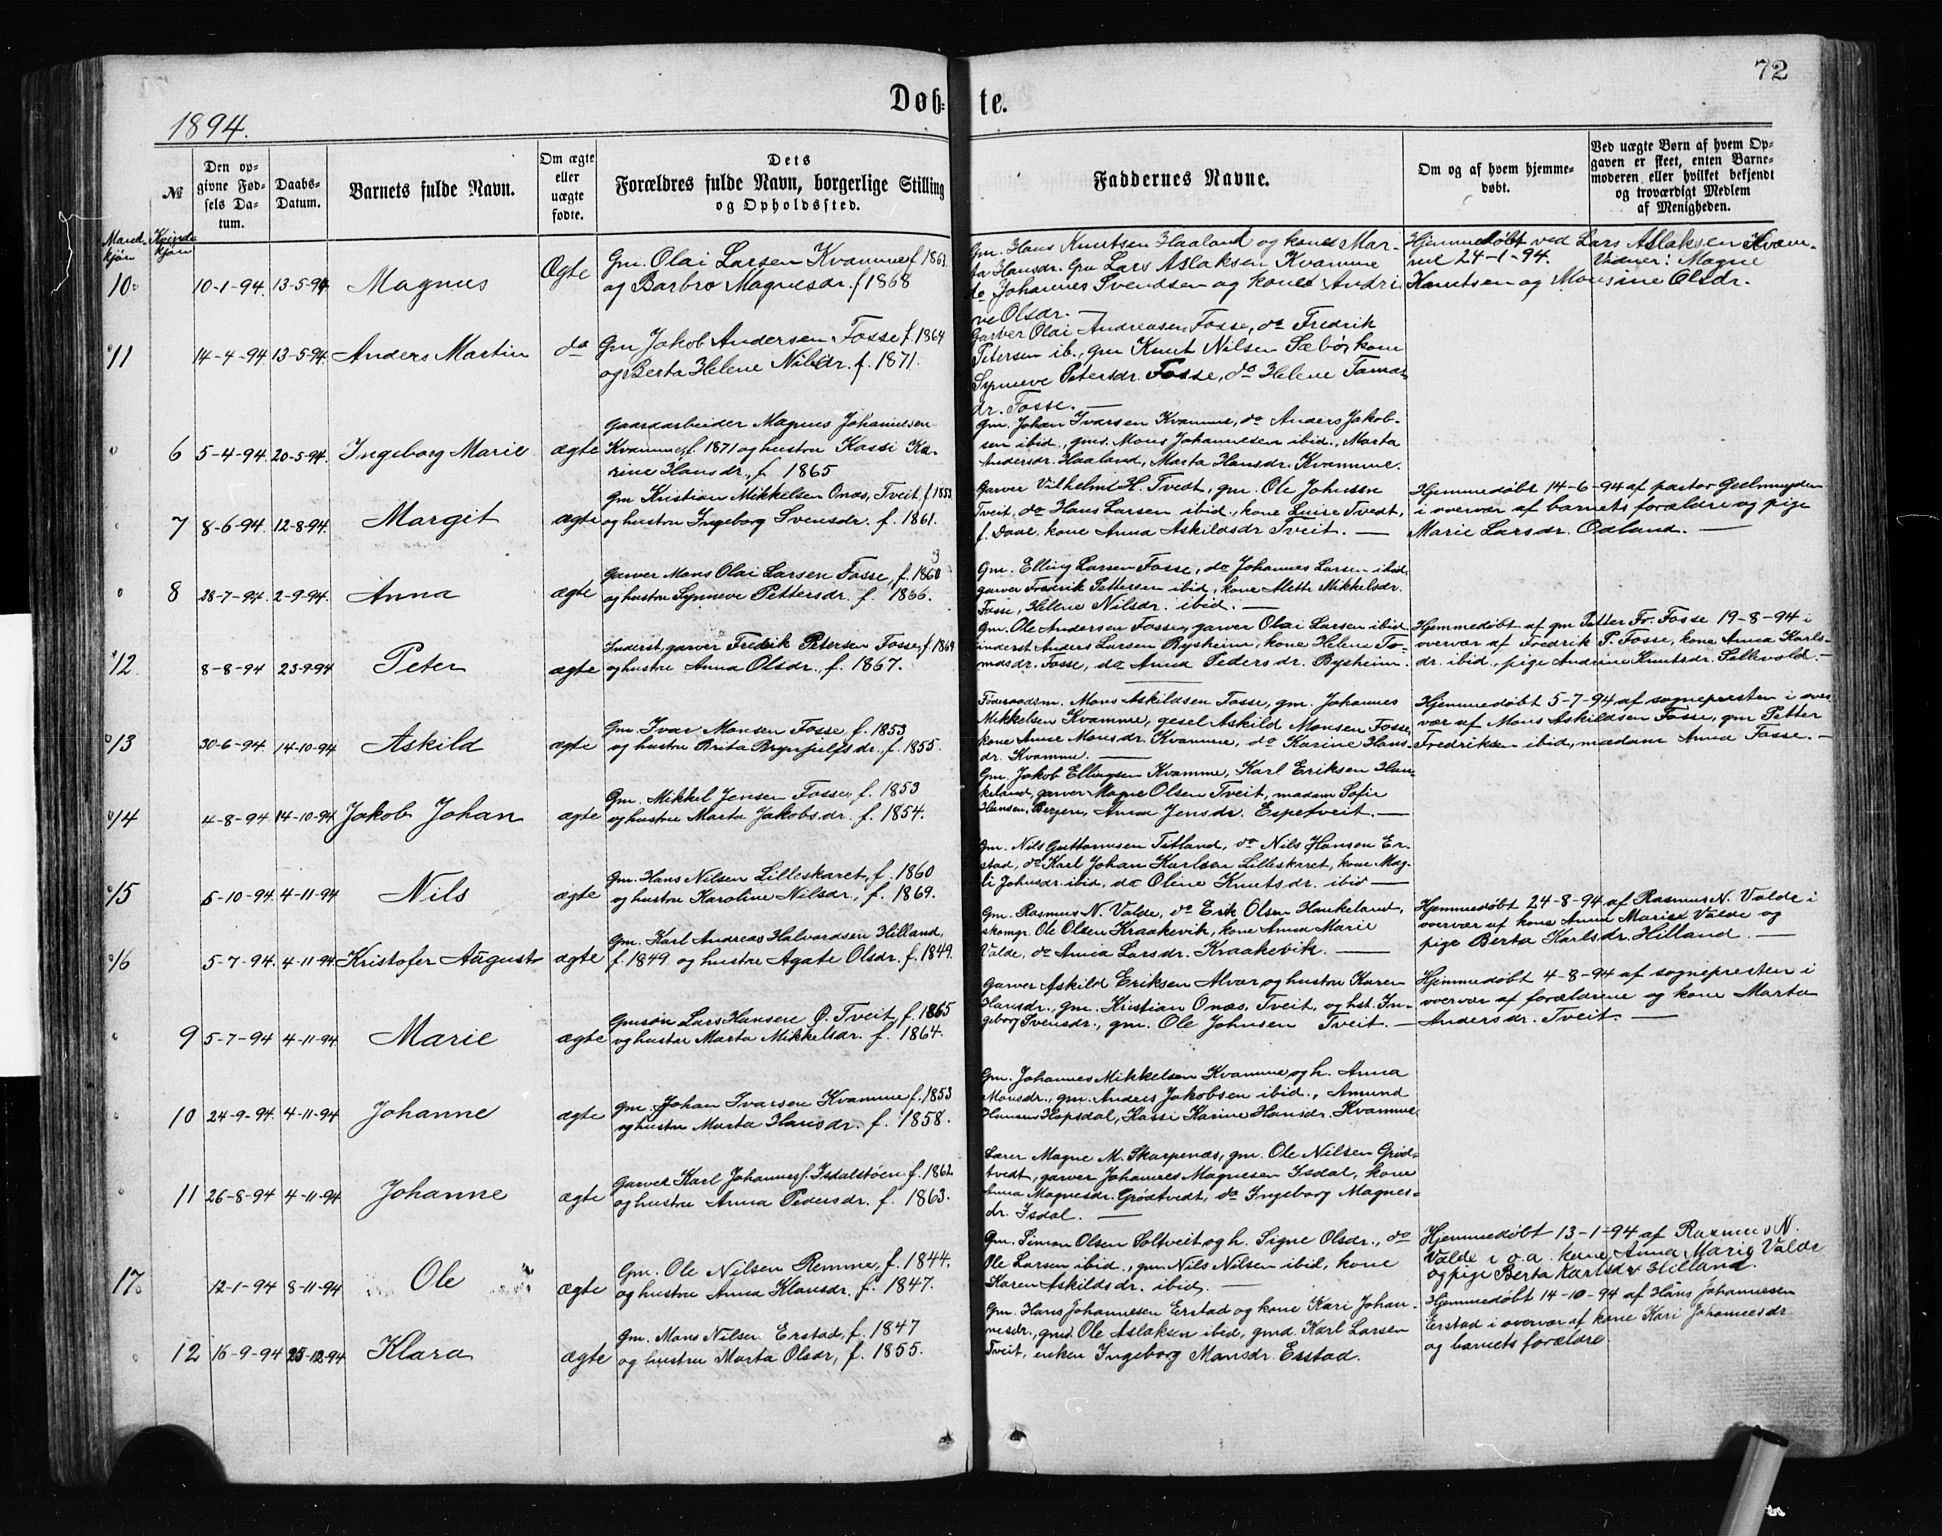 72
Døb- te.
1894.
№
Den op-
givne Fød-
sels Da-
tum.
Daabs-
Datum.
Barnets fulde Navn.
Om ægte
eller
uægte
fødte.
Dets
Forældres fulde Navn, borgerlige Stilling
og Opholdssted.
Faddernes Navne.
Om og af hvem hjemme-
døbt.
Ved uægte Børn af hvem Op-
gaven er skeet, enten Barne-
moderen eller hvilket bekjendt
og troværdigt Medlem
af Menigheden.
Mand-
kjøn
Kvinde
kjøn
10 10-1-94. 13-5-94. Magnus Ægte
Gm. Olai Larsen Kvamme f 1863.
og Barbro Magnesdr. f 1868
Gm. Hans Knutsen Haaland og kone Mar-
ta Hansdr. Gm Lars Aslaksen Kvamme
do Johannes Svendsen og kone Andri
ve Olsdr. —
Hjemmedøbt ved Lars Aslaksen Kvam-
me 24-1-94. Vidner: Magne
Knutsen og Monsine Olsdr.
11 14-4-94 13-5-94. Anders Martin do
Gm Jakob Andersen Fosse f. 1864
og Berta Helene Nilsdr. f. 1871.
Garver Olai Andreasen Fosse, do Fredrik
Petersen ib., gm Knut Nilsen Sæbø, kone
Synneve Petersdr. Fosse, do Helene Tomas
dr. Fosse. —
6 5-4-94. 20-5-94. Ingeborg Marie ægte
Gaardarbeider Magnus Johannesen
Kvamme, f. 1871 og hustru Kassi Ka-
rine Hansdr., f. 1865
Gm. Johan Ivarsen Kvamme, do Anders Jakob-
sen ibid., gms. Mons Johannesen ibid., Marta
Andersdr. Haaland, Marta Hansdr. Kvamme.
7 8-6-94. 12-8-94. Margit ægte
Gm Kristian Mikkelsen Onæs, Tveit, f. 1853
og hustru Ingeborg Svensdr. f. 1861.
Garver Vilhelm H. Tvedt, gm. Ole Johnsen
Tveit, do Hans Larsen ibid., kone Luise Tvedt,
f. Daae, kone Anna Askildsdr Tveit. —
Hjemmedøbt 14-6-94 af pastor Geelmuyden
i overvær af barnets forældre og pige
Marie Larsdr. Odland. —
8 28-7-94. 2-9-94. Anna ægte
Garver Mons Olai Larsen Fosse, f. 1860
og hustru Synneve Pettersdr. f. 1866.
Gm. Elling Larsen Fosse, do Johannes Larsen ibid.
garver Fredrik Pettersen ibid., kone Mette Mikkelsdr.
Fosse, Helene Nilsdr. ibid. —
12 8-8-94 23-9-94 Peter ægte
Inderst, garver Fredrik Petersen Fosse, f 1869
og hustru Anna Olsdr., f. 1867.
Gm. Ole Andersen Fosse, garver Olai Larsen ibid.
inderst Anders Larsen Bysheim, kone Helene To-
masdr. Fosse, do Anna Pedersdr. Bysheim.
Hjemmedøbt af gm Petter Fr. Fosse 19-8-94 i
overvær af Fredrik P. Fosse, kone Anna Karls-
dr. ibid., pige Andrine Knutsdr. Sellevold. —
13 30-6-94. 14-10-94 Askild ægte
Gm. Ivar Monsen Fosse f. 1853
og hustru Brita Brynjulfsdr. f. 1855.
Føderaadsm. Mons Askildsen Fosse, gm. Johannes
Mikkelsen Kvamme, gesel Askild Monsen Fosse,
kone Anne Monsdr. Kvamme, do Karine Hans-
dr. Kvamme. —
Hjemmedøbt 5-7-94 af sognepresten i over
vær af Mons Askildsen Fosse, gm Petter
Fredriksen ibid, madam Anna Fosse. —
14 4-8-94 14-10-94 Jakob Johan ægte
Gm. Mikkel Jensen Fosse, f. 1853
og hustru Marta Jakobsdr. f. 1854.
Gm. Jakob Ellingsen Kvamme, Karl Eriksen Hau
keland, garver Magne Olsen Tveit, madam Sofie
Hansen, Bergen, Anna Jensdr. Espetveit. —
15 5-10-94. 4-11-94 Nils ægte
Gm. Hans Nilsen Lilleskaret, f. 1860
og hustru Karoline Nilsdr., f. 1869.
Gm. Nils Guttormsen Titland, do Nils Hansen Er-
stad, do Karl Johan Karlsen Lilleskaret, kone Mag-
li Johnsdr. ibid, do Oline Knutsdr. ibid —
16 5-7-94. 4-11-94. Kristofer August ægte
Gm. Karl Andreas Halvordsen Hilland,
f. 1849 og hustru Agate Olsdr. f. 1849.
Gm. Rasmus N. Valde, do Erik Olsen Haukeland,
skomgr. Ole Olsen Kraakevik, kone Anna Marie
Valde, do Anna Larsdr. Kraakevik. —
Hjemmedøbt 24-8-94 af Rasmus N. Valde i
overvær af kone Anna Marie Valde og
pige Berta Karlsdr. Hilland —
9 5-7-94 4-11-94 Marie ægte
Gmsøn Lars Hansen Ø. Tveit, f. 1865
og hustru Marta Mikkelsdr. f. 1864.
Garver Askild Eriksen Alvær og hustru Karen
Hansdr., gm. Kristian Onæs, Tveit, og hst. In-
geborg Svensdr., gm. Ole Johnsen Tveit. —
Hjemmedøbt 4-8-94 af sognepresten i
overvær af forældrene og kone Marta
Andersdr. Tveit. —
10 24-9-94. 4-11-94 Johanne ægte
Gm. Johan Ivarsen Kvamme f. 1853
og hustru Marta Hansdr. f. 1858.
Gm. Johannes Mikkelsen Kvamme og h. Anna
Monsdr., gm. Anders Jakobsen ibid., Amund
Hansen Hopsdal, Kassi Karine Hansdr. Kvamme.
11 26-8-94 4-11-94 Johanne ægte
Garver Karl Johannes. Isdalstøen f. 1862
og hustru Anna Pedersdr. f. 1863.
Lærer Magne M. Skarpenæs, gm. Ole Nilsen Grød-
tvedt, garver Johannes Magnesen Isdal, kone
Anna Magnesdr. Grødtvedt, do Ingeborg Magnes-
dr. Isdal. —
17 12-1-94 8-11-94 Ole ægte
Gm. Ole Nilsen Remme, f. 1844.
og hustru Anna Klausdr. f. 1847.
Gm. Simon Olsen Soltveit og h. Signe Olsdr., do
Ole Larsen ibid., gm. Nils Nilsen ibid, kone
Karen Askildsdr. ibid. —
Hjemmedøbt 13-1-94 af Rasmus N.
Valde i o.a. kone Anna Marie Valde
og pige Berta Karlsdr Hilland.
12 16-9-94 25-12-94 Klara ægte
Gm. Mons Nilsen Erstad, f. 1847
og hustru Marta Olsdr, f. 1855.
Gm. Hans Johannesen Erstad og kone Kari Johan-
nesdr., gmd. Ole Aslaksen ibid, gmd. Karl Larsen
Tveit, enken Ingeborg Monsdr. Erstad.
Hjemmedøbt 14-10-94 af Hans Johannessen
Erstad i overvær af kone Kari Johannesdr
og barnets forældre